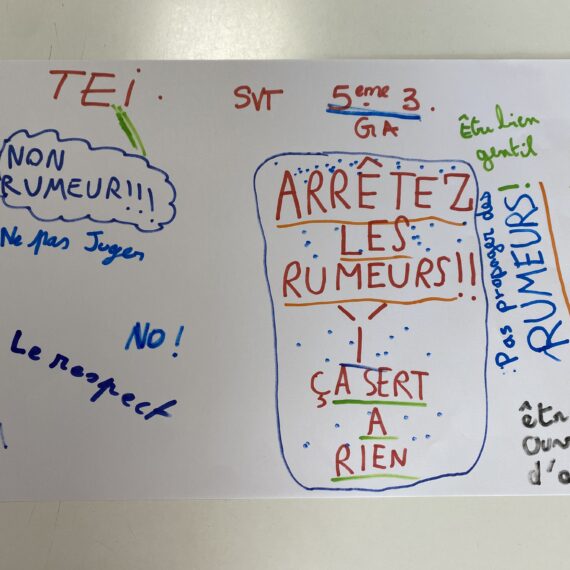 TEi.
SVT 5eme 3.
GA
Être bien
gentil
NON
RUMEUR!!!
Ne pas Juger
ARRÊTEZ
LES
RUMEURS!!
ÇA SERT
A
RIEN
Pas propager des
RUMEURS!
NO!
Le respect
êtr
Ouv
d'o